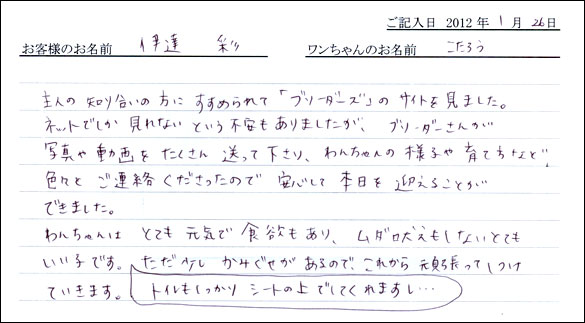 ご記入日 2012年 1月 26日
お客様のお名前 伊達 彩 ワンちゃんのお名前 こたろう
主人の知り合いの方にすすめられて「ブリーダーズ」のサイトを見ました。
ネットでしか見れないという不安もありましたが、ブリーダーさんが
写真や動画をたくさん送って下さり、わんちゃんの様子や育て方など、
色々とご連絡くださったので安心して本日を迎えることが
できました。
わんちゃんはとても元気で食欲もあり、ムダ吠えもしないとても
いい子です。ただ少しかみぐせがあるので、これから頑張ってしつけ
ていきます。トイレもしっかりシートの上でしてくれますし…